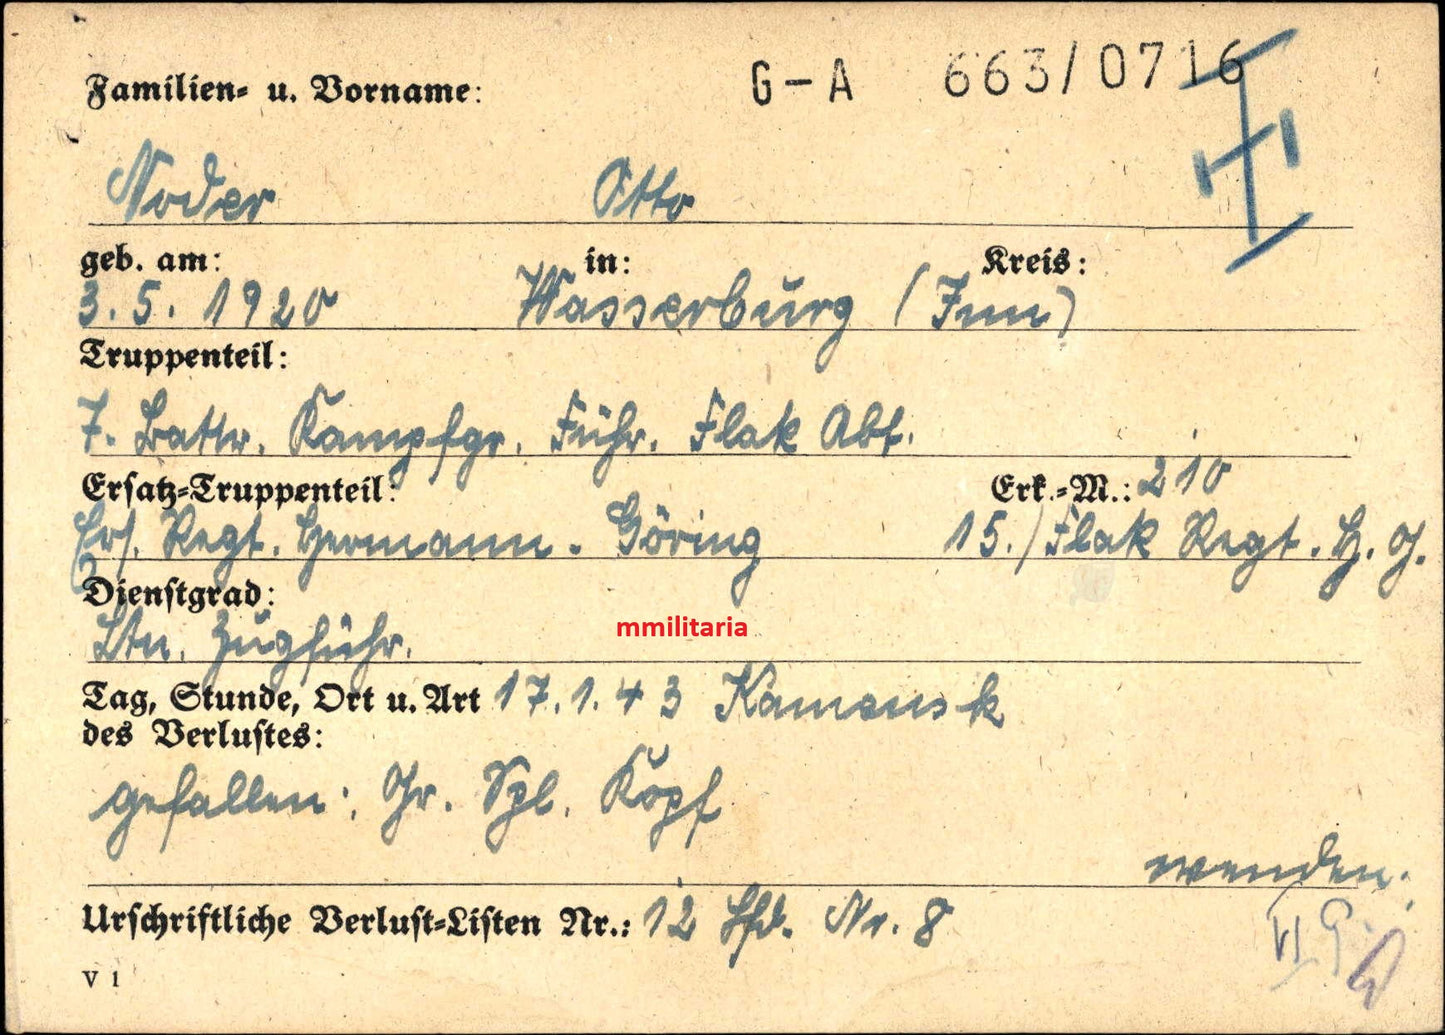 Familien- u. Vorname: G-A 663/0716
Noder Otto
geb. am: in: Kreis:
3.5. 1920 Wasserburg (Inn)
Truppenteil:
7. Battr. Kampfgr. Führ. Flak Abt.
Ersatz-Truppenteil: Erk.-M.: 210
Ers. Regt. Hermann-Göring 15./Flak Regt. H. G.
Dienstgrad:
Ltn. Zugführ.
mmilitaria
Tag, Stunde, Ort u. Art 17.1.43 Kamensk
des Verlustes:
gefallen: Gr. Spl. Kopf
wenden.
Urschriftliche Verlust-Listen Nr.: 12 Lfd. Nr. 8
V 1